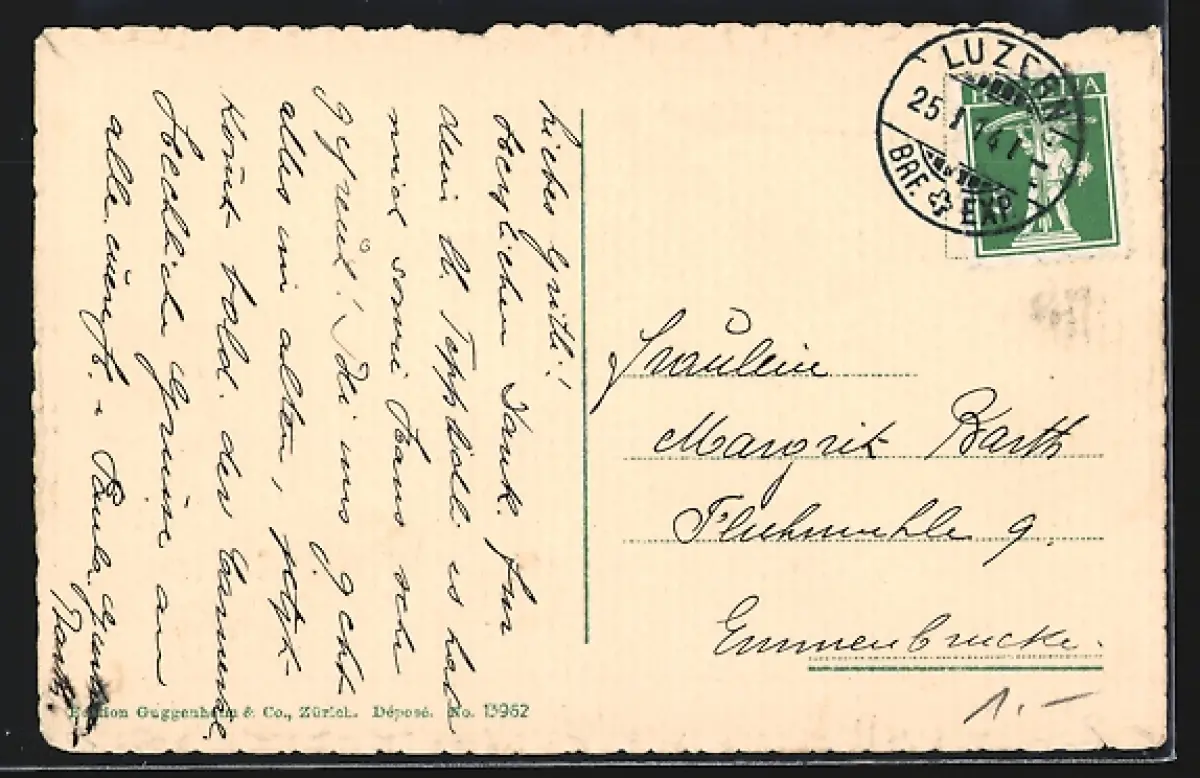 Liebes Gritli!
Herzlichen Dank. fur
dein lb. Topplädli. es hat
mich sowie Hans sehr
gefreut! Bei uns geht
alles im alten, jetzt
kommt bald. der
Herzliche Grüsse an
alle. - Paula.
LUZERN
25. I. 14 I -
BRF. EXP.
HELVETIA
Fräulein
Margrit Barth
Fluhmühle 9.
Emmenbrücke.
1.-
Edition Guggenheim & Co., Zürich. Déposé. No. 13962